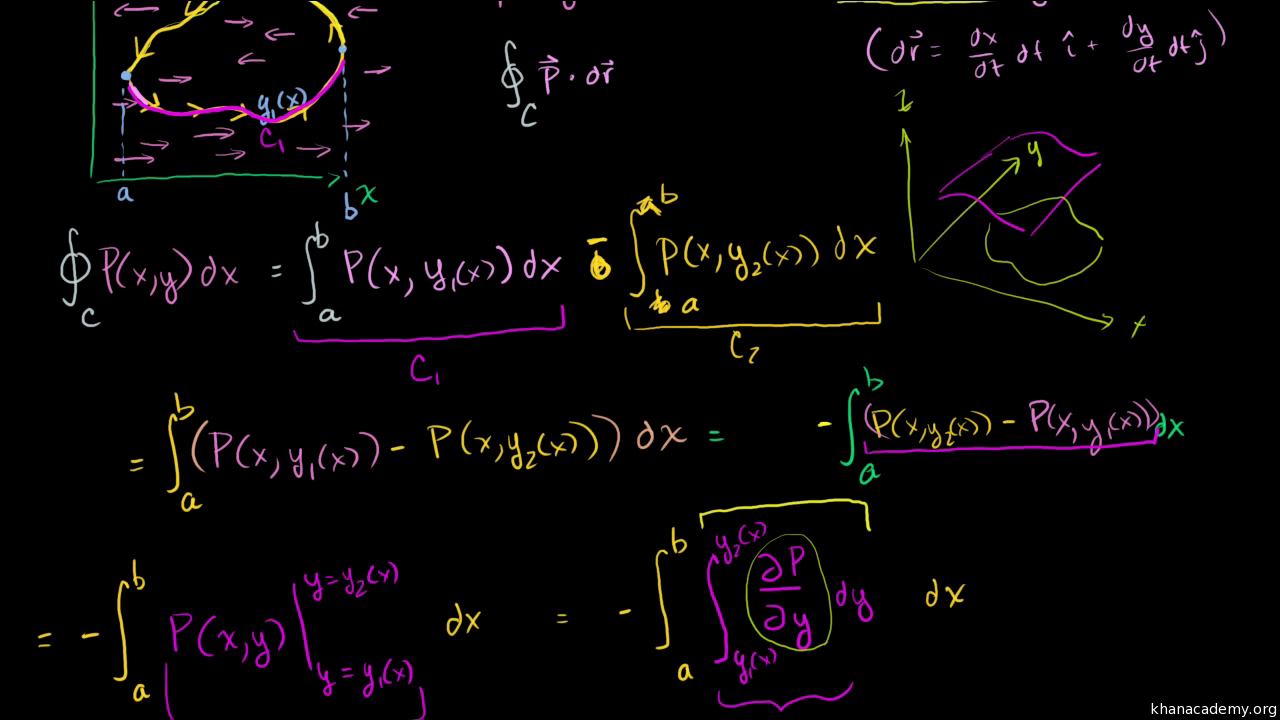 (d\vec{r} = \frac{dx}{dt} dt \hat{i} + \frac{dy}{dt} dt \hat{j})
\oint_C \vec{P} \cdot d\vec{r}
y_1(x)
C_1
a
b
x
z
y
x
\oint_C P(x,y) dx = \int_a^b P(x, y_1(x)) dx - \int_a^b P(x, y_2(x)) dx
C_1
C_2
= \int_a^b (P(x, y_1(x)) - P(x, y_2(x))) dx = - \int_a^b (P(x, y_2(x)) - P(x, y_1(x))) dx
= - \int_a^b P(x,y) |_{y = y_1(x)}^{y = y_2(x)} dx = - \int_a^b \int_{y_1(x)}^{y_2(x)} \frac{\partial P}{\partial y} dy dx
khanacademy.org